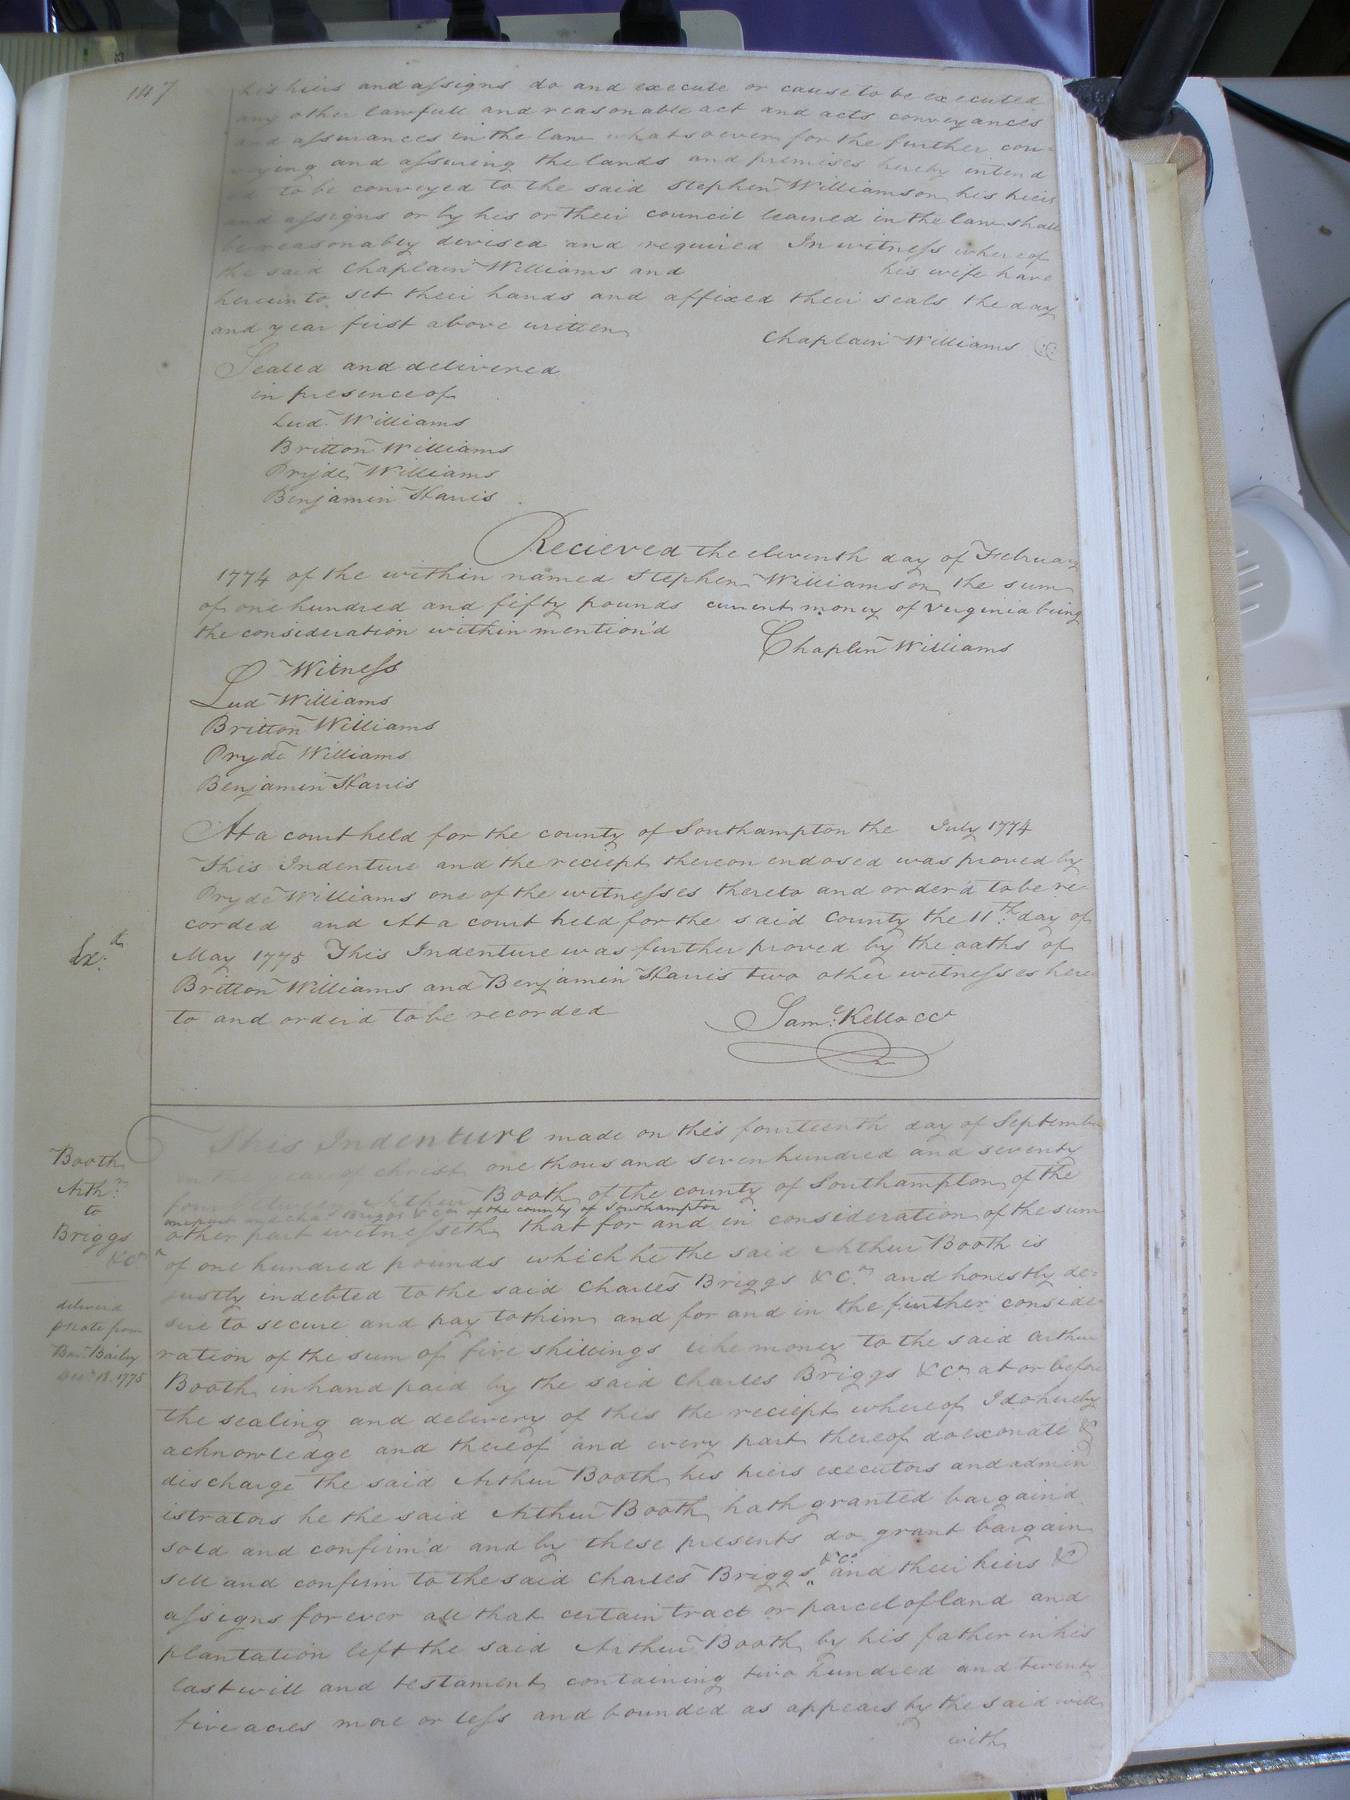 147
his heirs and assigns do and execute or cause to be executed
any other lawfull and reasonable act and acts conveyances
and assurances in the law whatsoever for the further con-
veying and assuring the lands and premises hereby intend
ed to be conveyed to the said Stephen Williamson his heirs
and assigns or by his or their council learned in the law shall
be reasonably devised and required In witness whereof
the said Chaplain Williams and his wife have
hereunto set their hands and affixed their seals the day
and year first above written
Chaplain Williams
Sealed and delivered
in presence of
Lud. Williams
Britton Williams
Pryde Williams
Benjamin Harris
Recieved the eleventh day of February
1774 of the within named Stephen Williamson the sum
of one hundred and fifty pounds current money of Verginia being
the consideration within mention'd
Chaplin Williams
Witness
Lud Williams
Britton Williams
Pryde Williams
Benjamin Harris
At a court held for the county of Southampton the July 1774
This Indenture and the reciept thereon endosed was proved by
Pryde Williams one of the witnesses thereto and order'd to be re
corded and At a court held for the said County the 11th day of
May 1775 This Indenture was further proved by the oaths of
Britton Williams and Benjamin Harris two other witnesses here
to and orderd to be recorded
Ex.d
Saml. Kello CCr
Booth
Arthr.
to
Briggs
&Co
deliverd
p note from
Bailey
1775
This Indenture made on this fourteenth day of September
in the year of christ one thousand seven hundred and seventy
four between Arthur Booth of the county of Southampton of the
one part and Chas Briggs & Co of the county of Southampton
other part witnesseth that for and in consideration of the sum
of one hundred pounds which he the said Arthur Booth is
justly indebted to the said Charles Briggs & Co. and honestly de-
sire to secure and pay to them and for and in the further conside
ration of the sum of five shillings like money to the said Arthur
Booth in hand paid by the said Charles Briggs & Co at or before
the sealing and delivery of this the reciept whereof I do hereby
acknowledge and thereof and every part thereof do exonate &
discharge the said Arthur Booth his heirs executors and admin
istrators he the said Arthur Booth hath granted bargain'd
sold and confirm'd and by these presents do grant bargain
sell and confirm to the said Charles Briggs & Co. and their heirs &
assigns forever all that certain tract or parcel of land and
plantation left the said Arthur Booth by his father in his
last will and testament containing two hundred and twenty
five acres more or less and bounded as appears by the said will
with